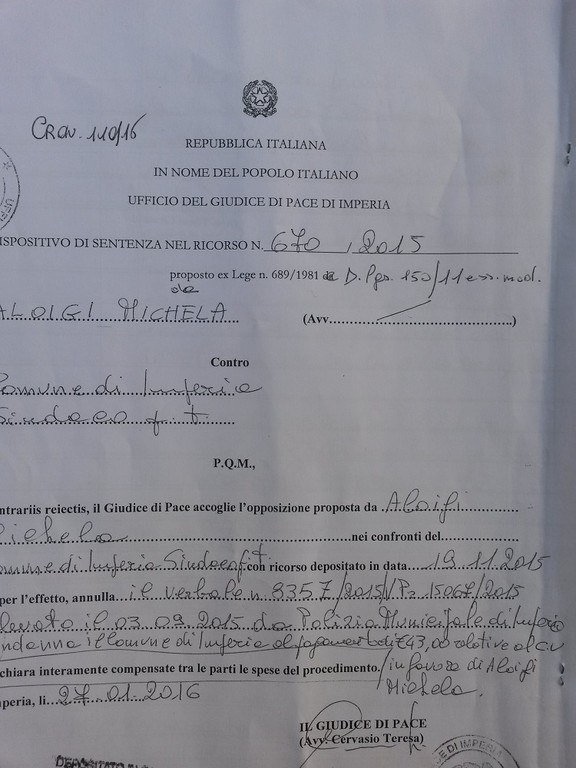 Cron. 110/16
REPUBBLICA ITALIANA
IN NOME DEL POPOLO ITALIANO
UFFICIO DEL GIUDICE DI PACE DI IMPERIA
ISPOSITIVO DI SENTENZA NEL RICORSO N. 670 / 2015
proposto ex Lege n. 689/1981 e D. Lgs. 150/11 e ss. mod.
da
ALOIGI MICHELA (Avv. )
Contro
Comune di Imperia
Sindaco p.t.
P.Q.M.,
ntrariis reiectis, il Giudice di Pace accoglie l'opposizione proposta da Aloigi
Michela nei confronti del
omune di Imperia Sindaco p.t. con ricorso depositato in data 19.11.2015
per l'effetto, annulla il verbale n. 3357/2015/V Pr 15067/2015
levato il 03.09.2015 da Polizia Municipale di Imperia
ndanna il Comune di Imperia al pagamento di € 43,00 relative al cu
chiara interamente compensate tra le parti le spese del procedimento. in favore di Aloigi
Michela.
mperia, li 27.01.2016
IL GIUDICE DI PACE
(Avv. Cervasio Teresa)
DI IMPERIA
DEPOSITATO IN